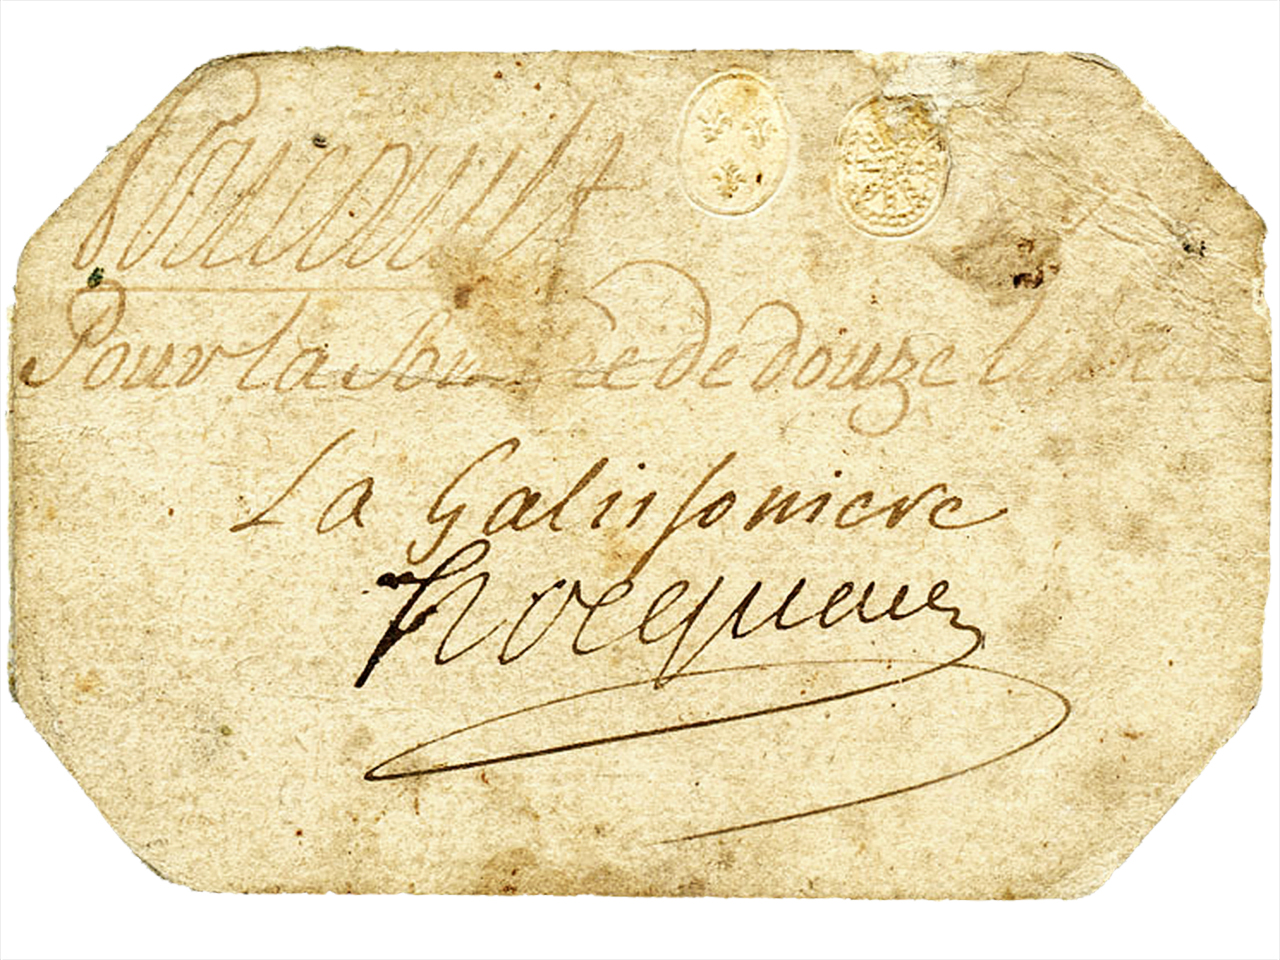 Pour la somme de douze livres
La Galissoniere
hocquart